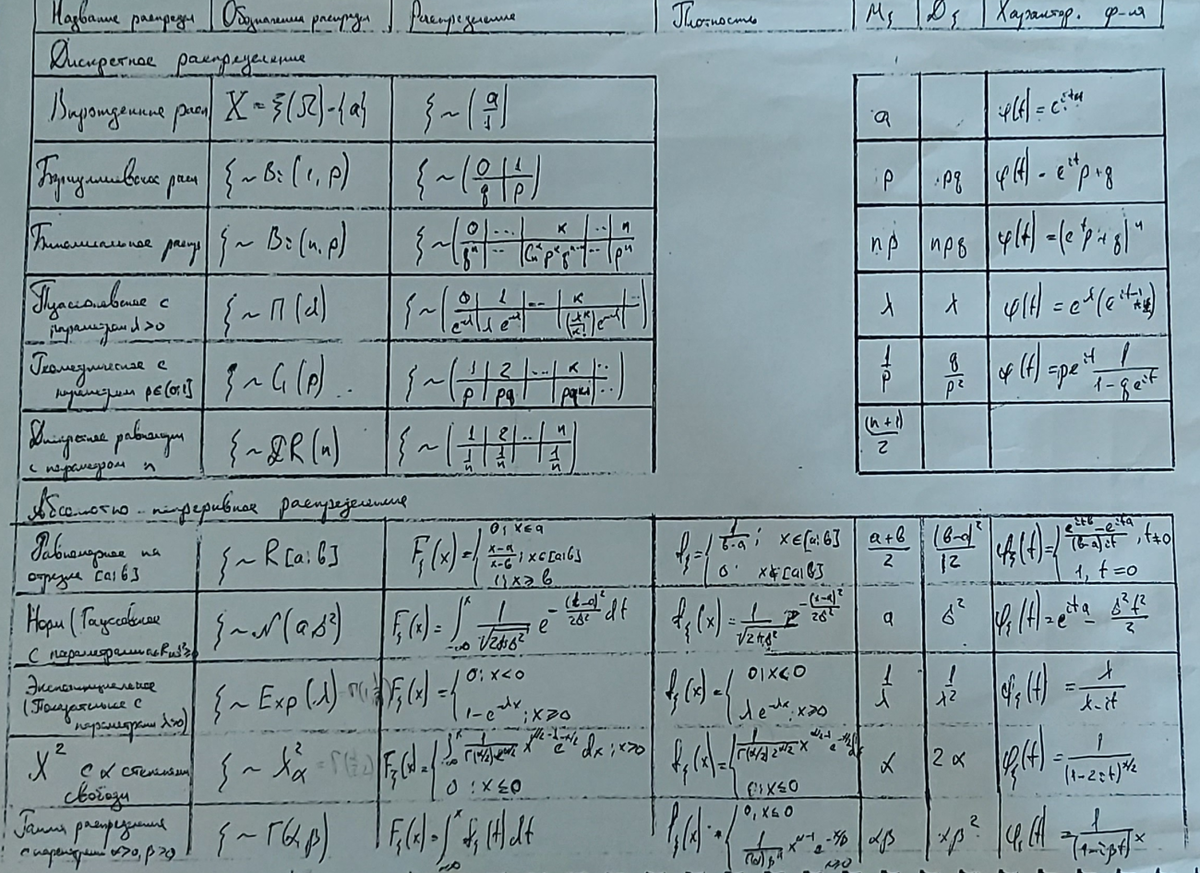 Название распредел Обозначения распредел Распределение Плотность Mξ Dξ Характер. ф-ия
Дискретное распределение
Вырожденное расп X = ξ(Ω) - {a} ξ ~ (a / 1) a φ(t) = e^{ita}
Бернуллиевское расп ξ ~ Bi (1, p) ξ ~ (0 | 1 / q | p) p pq φ(t) - e^{it}p+q
Биномиальное распр ξ ~ Bi (n, p) ξ ~ (0 | ... | к | ... | n / q^n | ... | C_n^к p^к q^{n-к} | ... | p^n) np npq φ(t) = (e^t p + q)^n
Пуассоновское с
параметром λ>0 ξ ~ П (λ) ξ ~ (0 | 1 | ... | к | ... / e^{-λ} | λ e^{-λ} | | (λ^к/к!) e^{-λ} | ...) λ λ φ(t) = e^λ(e^{it-1}
Геометрическое с
параметром p∈(0;1] ξ ~ G (p) ξ ~ (1 | 2 | ... | к | ... / p | pq | | pq^{к-1} | ...) 1/p q/p² φ(t) = pe^{it} 1/(1-qe^{it})
Дискретное равномерн
с параметром n ξ ~ DR (n) ξ ~ (1 | 2 | .. | n / 1/n | 1/n | | 1/n) (n+1)/2
Абсолютно - непрерывное распределение
Равномерное на
отрезке [a;b] ξ ~ R [a;b] F_ξ(x) = { 0; x≤a (x-a)/(x-b); x∈[a;b] 1; x≥b f_ξ = { 1/(b-a); x∈[a;b] 0; x∉[a;b] (a+b)/2 (b-a)²/12 φ_ξ(t) = { (e^{itb}-e^{ita})/((b-a)it), t≠0 1, t=0
Норм (Гауссовское
с параметрами ξ ~ N (a,δ²) F_ξ(x) = ∫_{-∞}^x 1/√(2πδ²) e^{-(t-a)²/2δ²} dt f_ξ(x) = 1/√(2πδ²) e^{-(t-a)²/2δ²} a δ² φ_ξ(t) = e^{ita - δ²t²/2}
Экспоненциальное
(Показательное с
параметрами λ>0) ξ ~ Exp (λ) F_ξ(x) = { 0; x<0 1-e^{-λx}; x≥0 f_ξ(x) = { 0; x<0 λe^{-λx}; x≥0 1/λ 1/λ² φ_ξ(t) = λ/(λ-it)
X² с α степенями
свободы ξ ~ X²_α F_ξ(x) = { dx; x>0 0; x≤0 f_ξ(x) = { 0; x≤0 α 2α φ_ξ(t) = 1/(1-2it)^{α/2}
Гамма распределения
с параметрами α>0, β>0 ξ ~ Γ(α, β) F_ξ(x) = ∫_{-∞}^x f_ξ(t) dt f_ξ(x) = { 0, x≤0 1/(Γ(α)β^α) x^{α-1} e^{-x/β} x>0 αβ αβ² φ_ξ(t) = 1/(1-iβt)^α